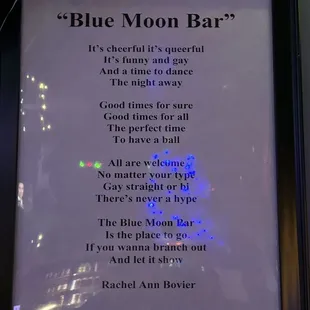 “Blue Moon Bar”
It's cheerful it's queerful
It's funny and gay
And a time to dance
The night away
Good times for sure
Good times for all
The perfect time
To have a ball
All are welcome
No matter your type
Gay straight or bi
There's never a hype
The Blue Moon Bar
Is the place to go
If you wanna branch out
And let it show
Rachel Ann Bovier